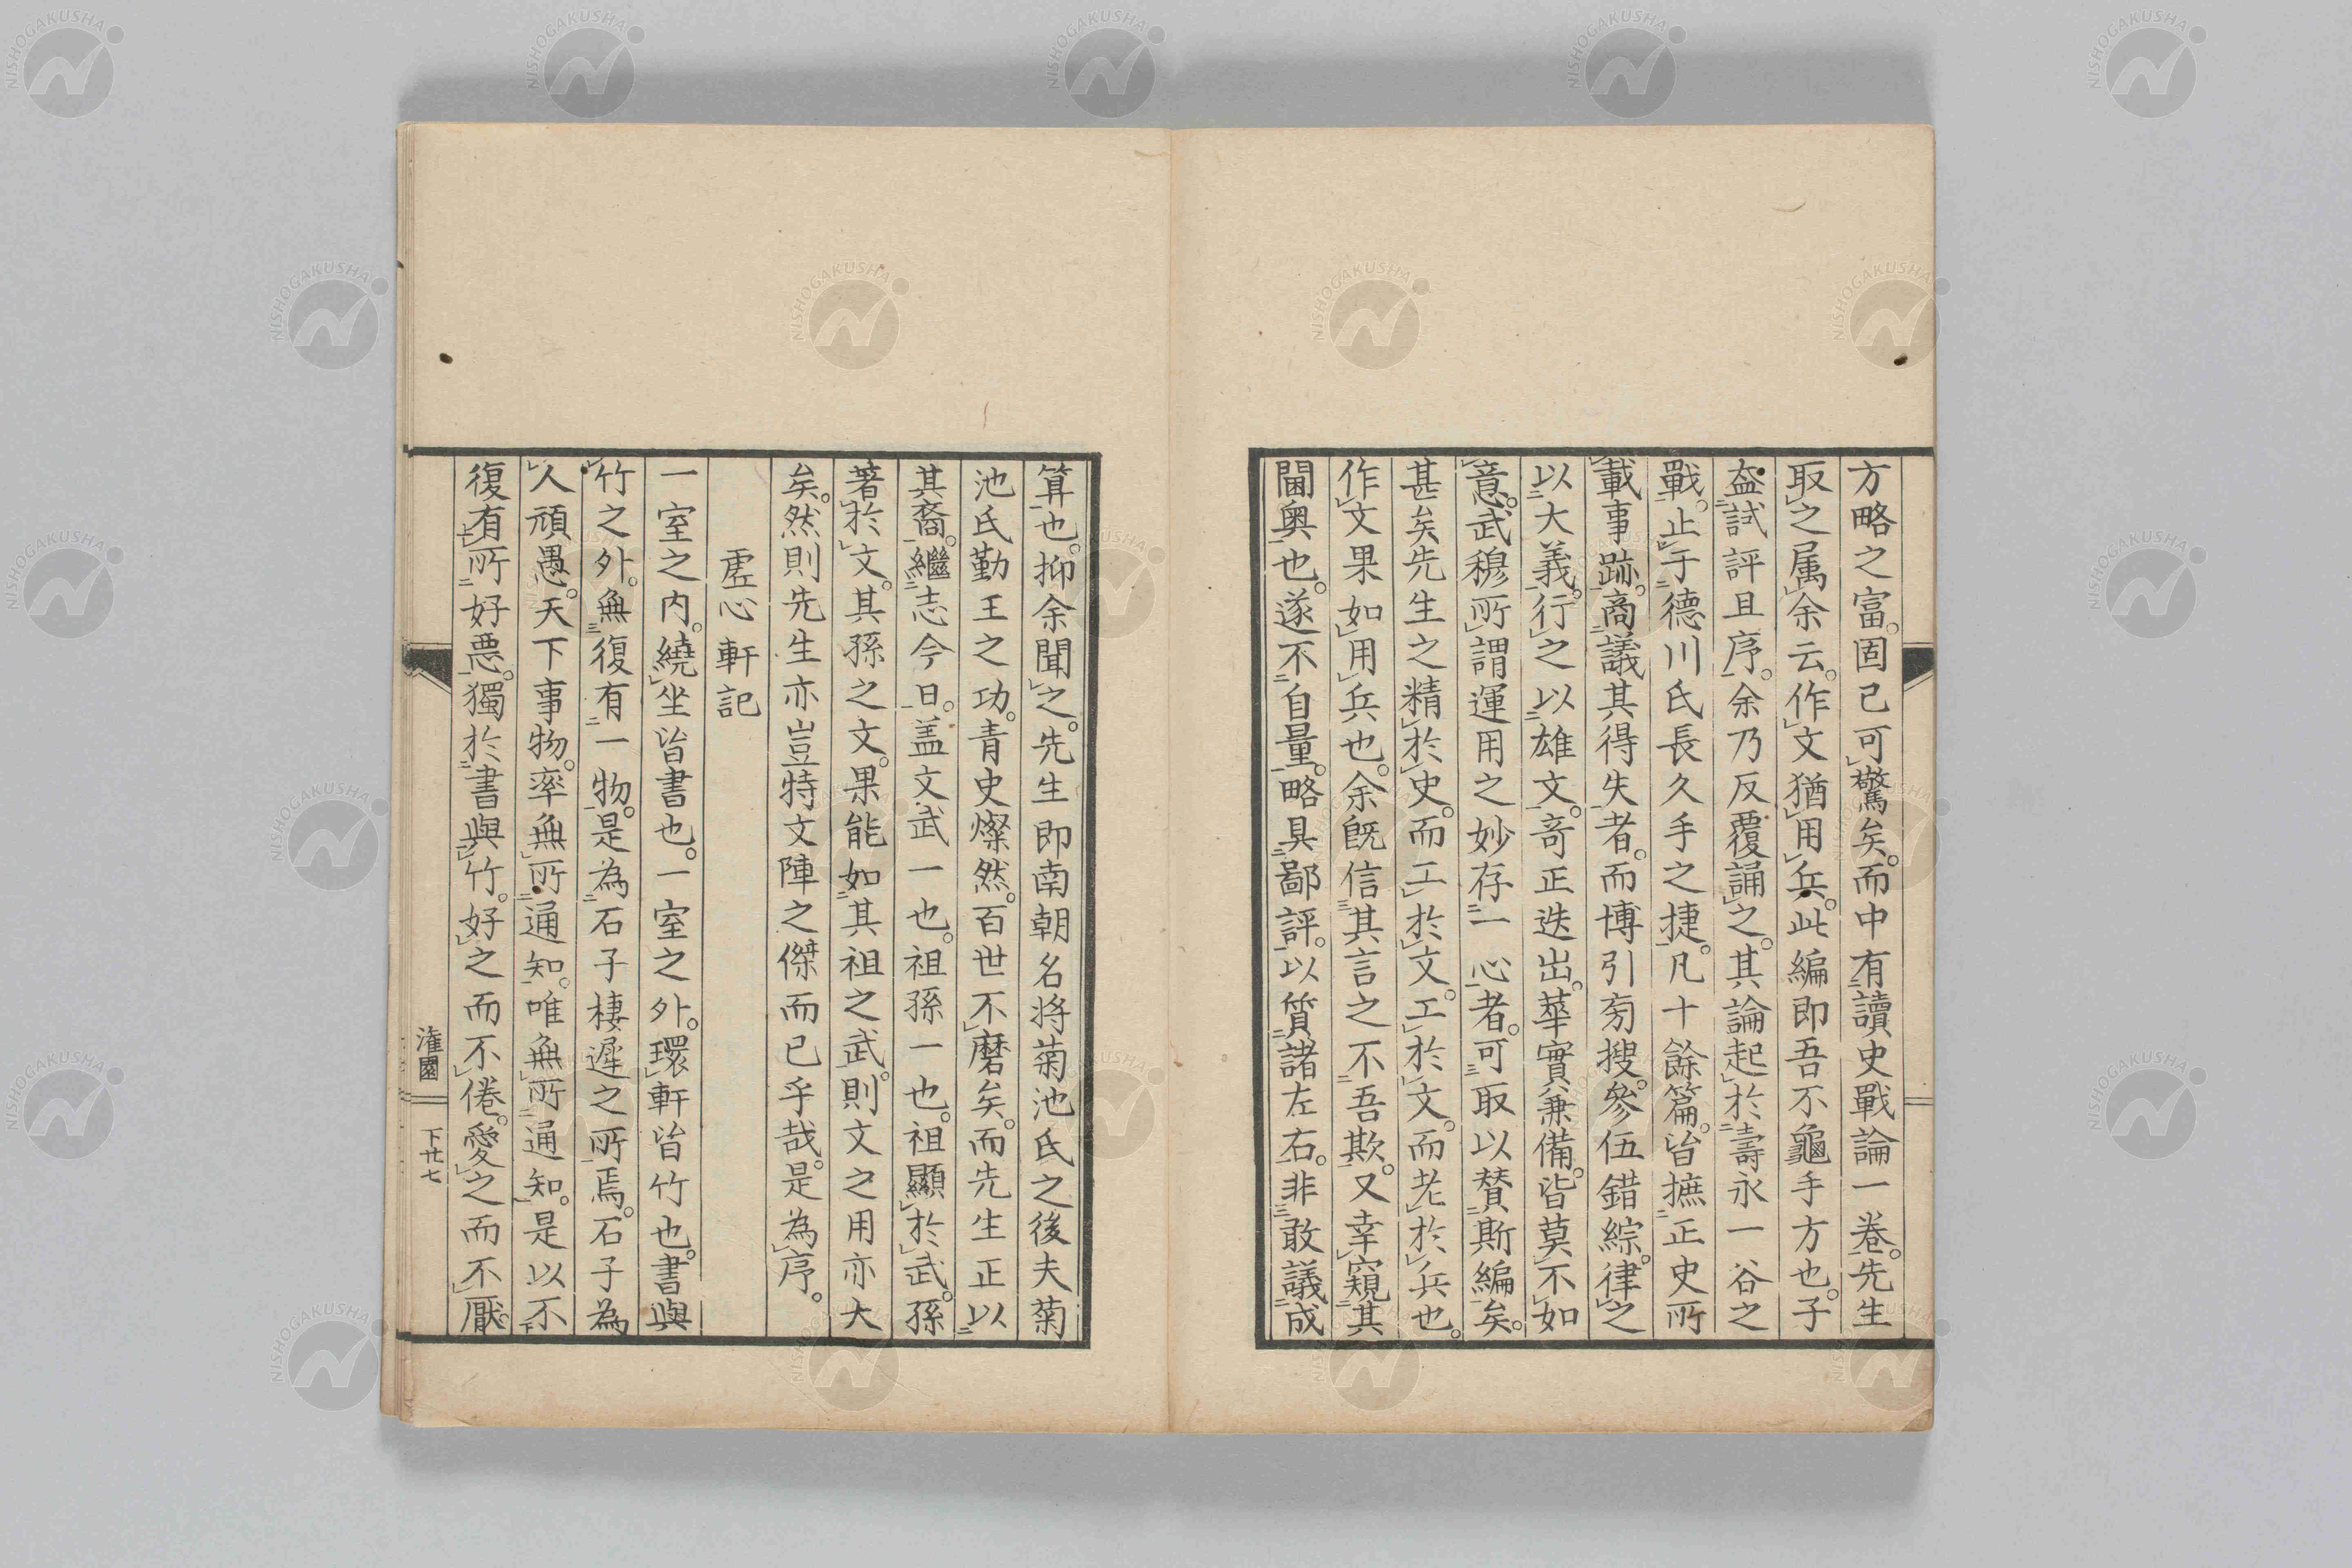 方略之富。固已可驚矣。而中有讀史戰論一卷。先生
取之属余云。作文猶用兵。此編即吾不龜手方也。子
盍試評且序。余乃反覆誦之。其論起於壽永一谷之
戰。止于德川氏長久手之捷。凡十餘篇。皆摭正史所
載事跡。商議其得失者。而博引旁搜。參伍錯綜。律之
以大義。行之以雄文。奇正迭出。華實兼備。皆莫不如
意。武穆所謂運用之妙存一心者。可取以賛斯編矣。
甚矣先生之精於史。而工於文。工於文。而老於兵也。
作文果如用兵也。余既信其言之不吾欺。又幸窺其
閫奥也。遂不自量。略具鄙評。以質諸左右。非敢議成
算也。抑余聞之。先生即南朝名将菊池氏之後夫菊
池氏勤王之功。青史燦然。百世不磨矣。而先生正以
其裔。繼志今日。盖文武一也。祖孫一也。祖顯於武。孫
著於文。其孫之文。果能如其祖之武。則文之用亦大
矣。然則先生亦豈特文陣之傑而已乎哉。是為序。
虚心軒記
一室之内。繞坐皆書也。一室之外。環軒皆竹也。書與
竹之外。無復有一物。是為石子棲遲之所焉。石子為
人頑愚。天下事物。率無所通知。唯無所通知。是以不
復有所好悪。獨於書與竹。好之而不倦。愛之而不厭。
淮園
下廿七
NISHOGAKUSHA